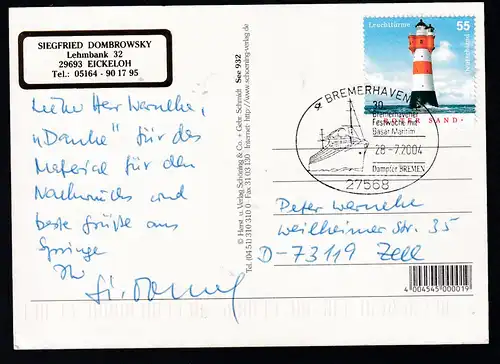 SIEGFRIED DOMBROWSKY
Lehmbank 32
29693 EICKELOH
Tel.: 05164 - 90 17 95
Lieber Herr Warneke,
"Danke" für das
Material für den
Nachwuchs und
beste Grüße aus
Springe
Ihr
© Horst u. Verlag Schöning & Co. + Gebr. Schmidt See 932
Tel. (0451) 310 310 0 · Fax 31 03 130 Internet: http://www.schoening-verlag.de
Leuchttürme
55
Deutschland
ROTER SAND
BREMERHAVEN
30.
Bremerhavener
Festwoche mit
Basar Maritim
28-7.2004
Dampfer BREMEN
27568
Peter Warneke
Weilheimer Str. 35
D-73119 Zell
4 004545 000019